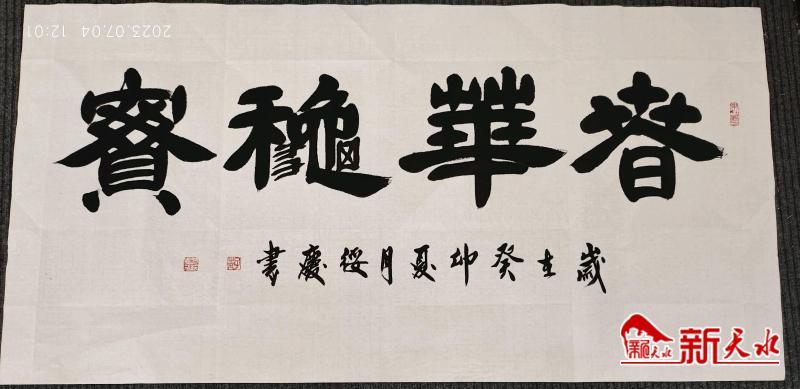 2023.07.04 12:01
春華穐實
歲在癸卯夏月绥慶書
新天水
新天水